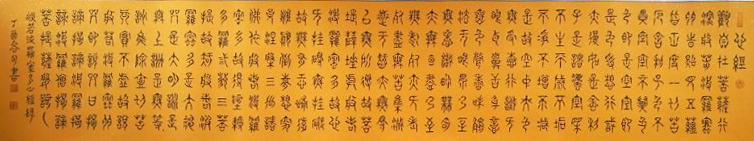 心經
觀自在菩薩行
深般若波羅蜜
多時照見五蘊
皆空度一切苦
厄舍利子色不
異空空不異色
色即是空空即
是色受想行識
亦復如是舍利
子是諸法空相
不生不滅不垢
不淨不增不減
是故空中無色
無受想行識無
眼耳鼻舌身意
無色聲香味觸
法無眼界乃至
無意識界無無
明亦無無明盡
乃至無老死亦
無老死盡無苦
集滅道無智亦
無得以無所得
故菩提薩埵依
般若波羅蜜多
故心無罣礙無
罣礙故無有恐
怖遠離顛倒夢
想究竟涅槃三
世諸佛依般若
波羅蜜多故得
阿耨多羅三藐
三菩提故知般
若波羅蜜多是
大神咒是大明
咒是無上咒是
無等等咒能除
一切苦真實不
虛故說般若波
羅蜜多咒即說
咒曰揭諦揭
諦波羅揭諦
波羅僧揭諦
菩提薩婆訶
般若波羅蜜多心經
丁酉冬月書